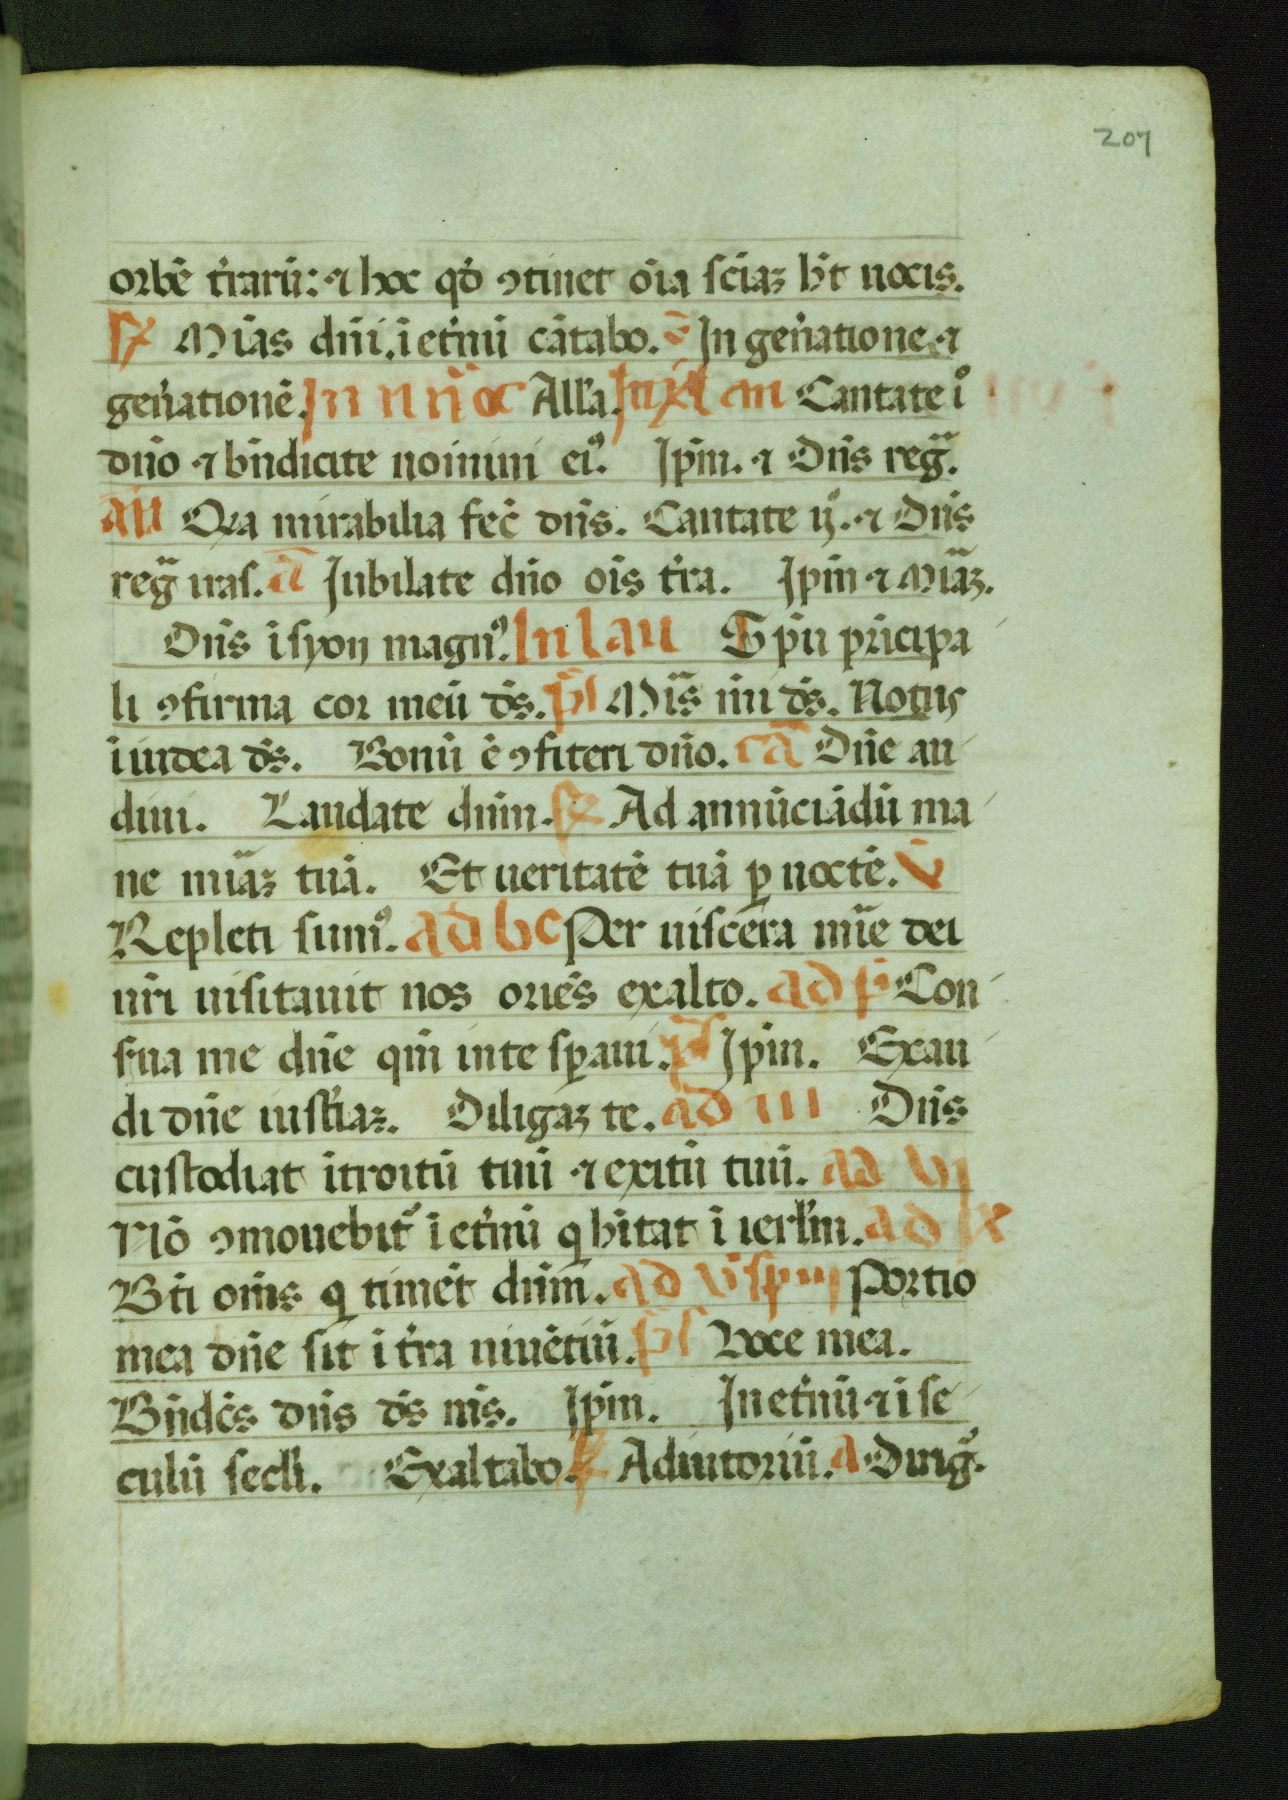 207
orbē t̄rarū: ⁊ hoc qđ ꝯtinet oīa sciāꝫ ht̄ uocis.
℟ Mīas dn̄i. ī et̄nū cātabo. ℣ In gen̄atione ⁊
gen̄ationē. In n noc Allā. Inuitan Cantate i°
dn̄o ⁊ bn̄dicite nomini eiꝰ. Ip̄m. ⁊ Dn̄s reḡ.
añ Qia mirabilia fec̄ dn̄s. Cantate ij°. ⁊ Dn̄s
reḡ iras. ā Iubilate dn̄o oīs t̄ra. Ip̄m ⁊ Mīaꝫ.
Dn̄s ī syon magnꝰ. In lau Sp̄u pricipa
li ꝯfirma cor meū dš. p̄s Mīs m̄i dš. Notus
ī iudea dš. Bonū ē ꝯfiteri dn̄o. cā Dn̄e au
diui. Laudate dnm̄. ℟ Ad annūciādū ma
ne mīaꝫ tuā. Et ueritatē tuā ꝑ noctē. v̄
Repleti sumꝰ. ad bc Per uiscera mīe dei
nr̄i uisitauit nos oriēs exalto. ad p̄ Con
s̄ua me dn̄e qm̄ inte sꝑaui. p̄s Ip̄m. Exau
di dn̄e iustīaꝫ. Diligaꝫ te. ad III Dn̄s
custodiat ītroitū tuū ⁊ exitū tuū. ad VI
Nō ꝯmouebit᷑ ī et̄nū q hītat ī ierlm̄. ad IX
Bt̄i om̄s q timēt dnm̄. ad v̄spas Portio
mea dn̄e sit ī t̄ra uiuētiū. p̄s Voce mea.
Bn̄dēs dn̄s dš ms̄. Ip̄m. In et̄nū ⁊ ī se
culū seclī. Exaltabo. ℟ Adiutoriū. A Dirig᷑.